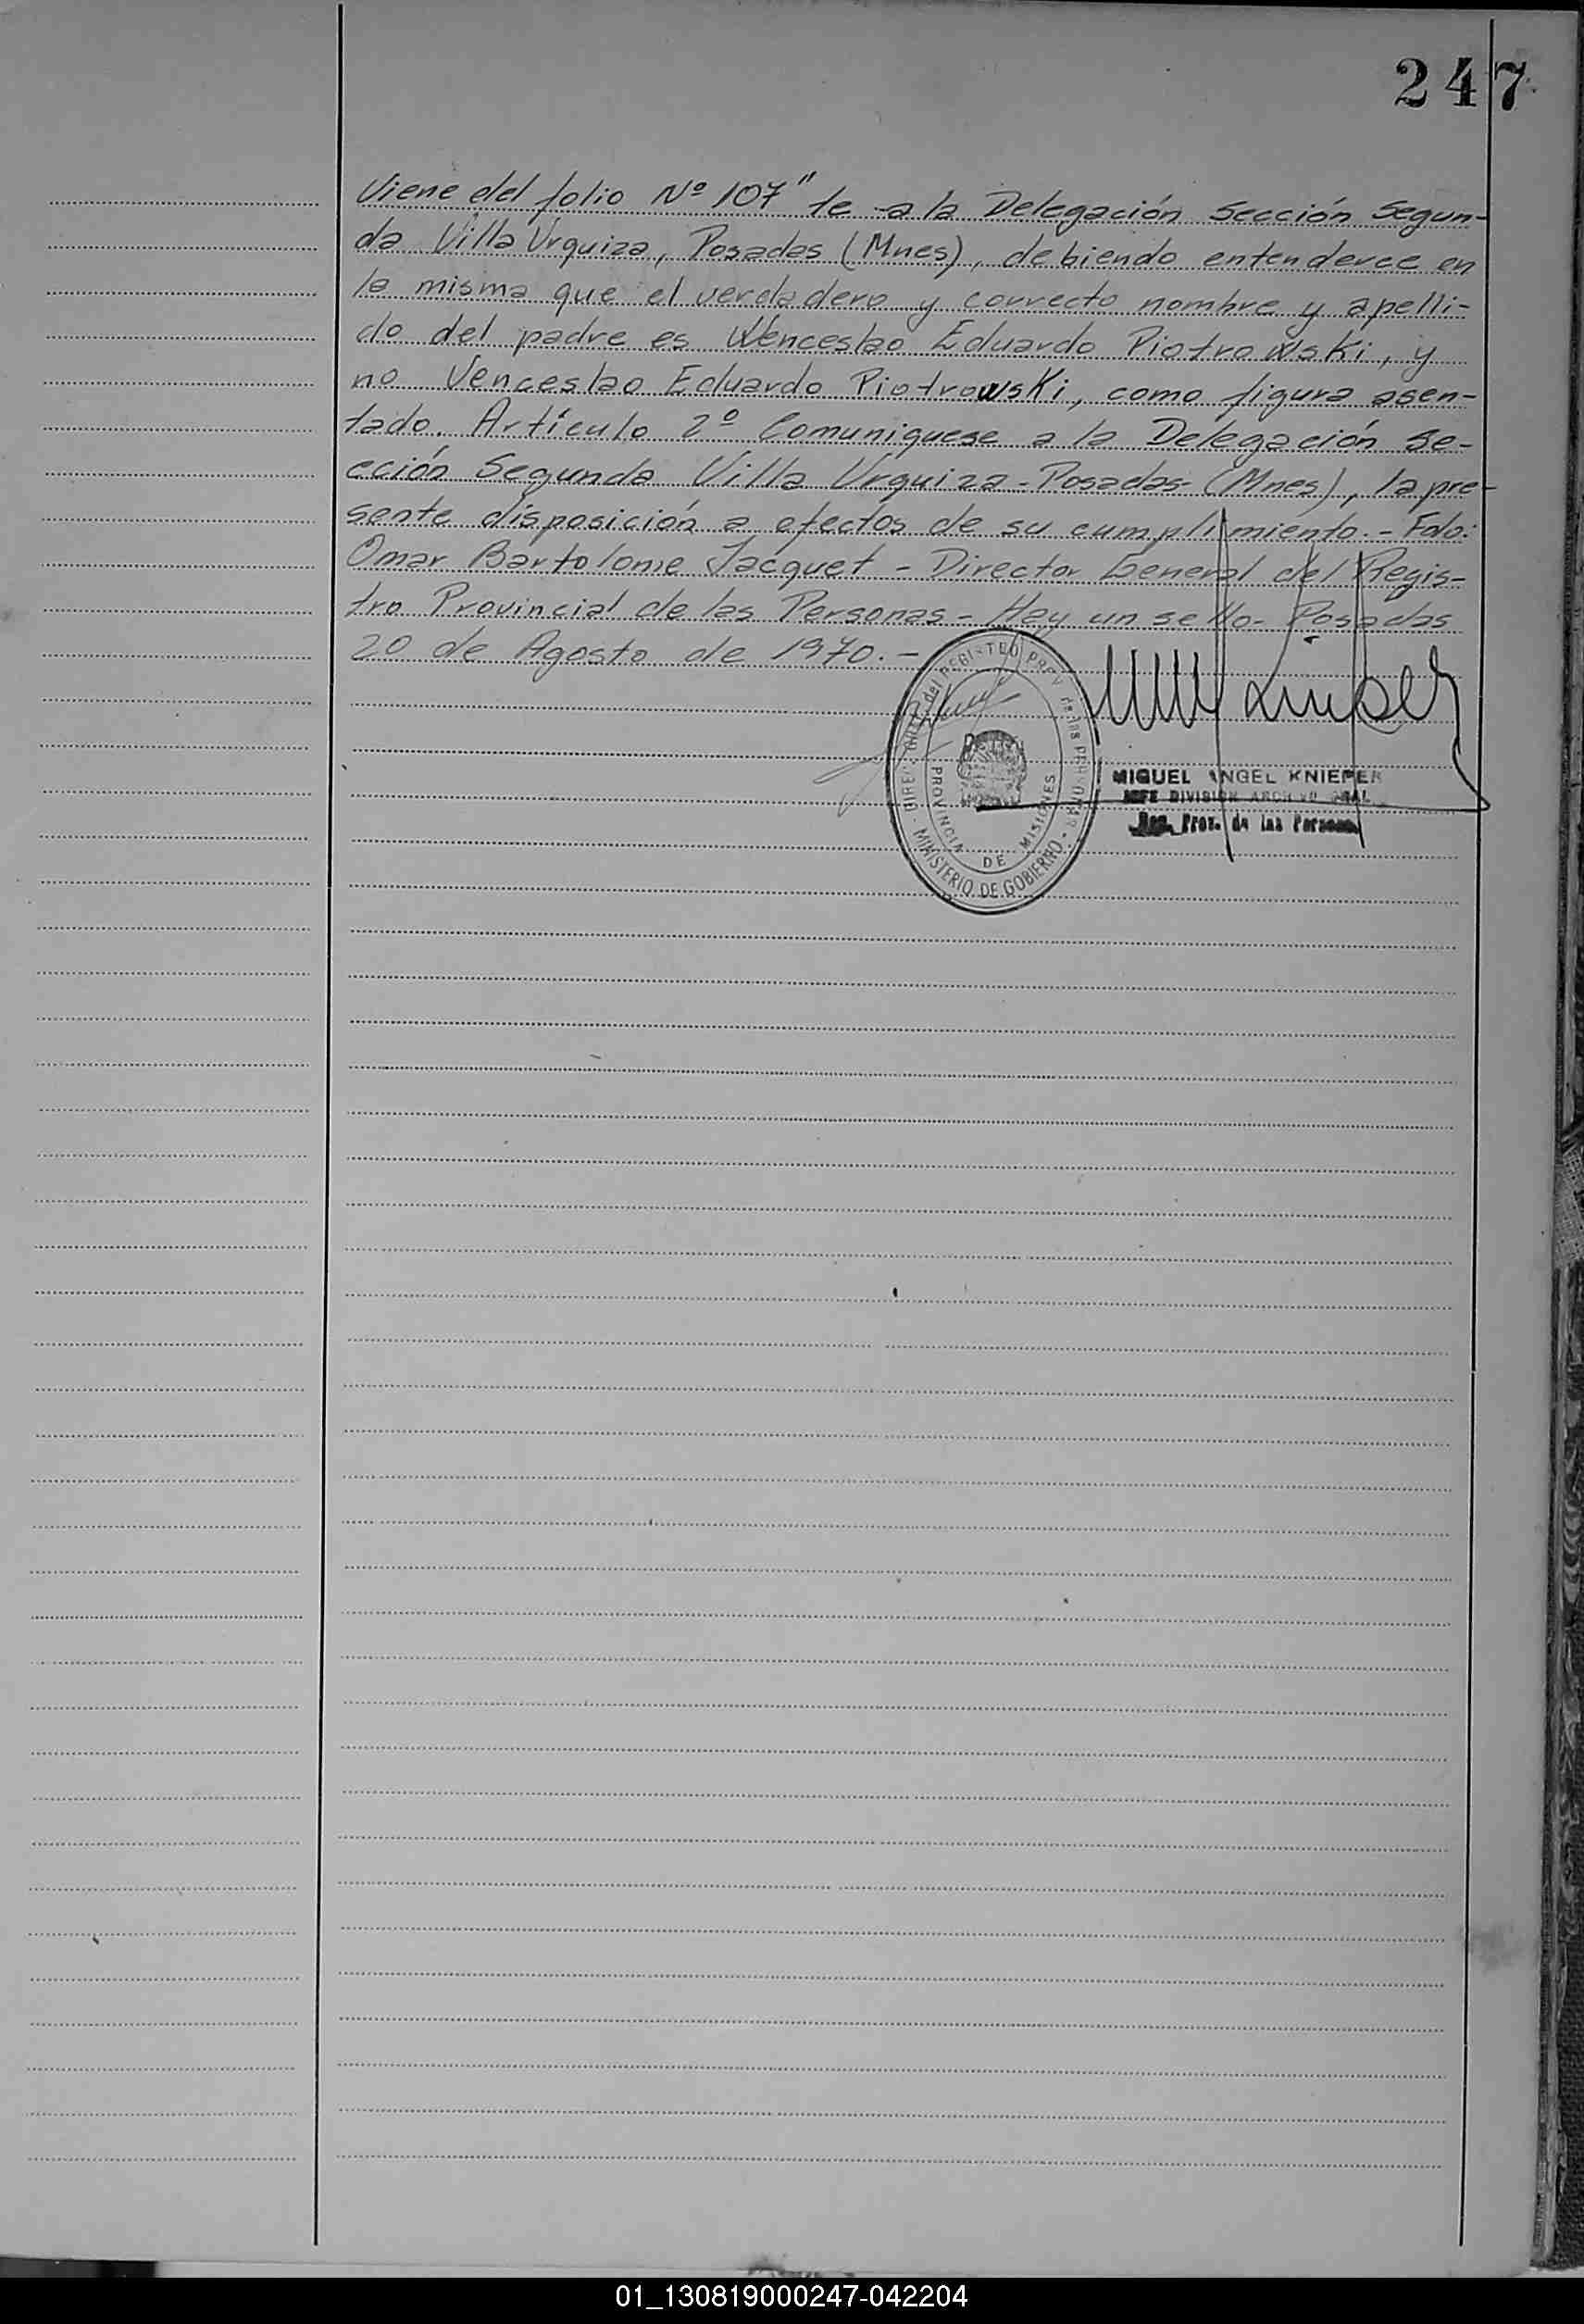 247
Viene del folio Nº 107" te a la Delegación Sección Segun-
da Villa Urquiza, Posadas (Mnes), debiendo entenderce en
la misma que el verdadero y correcto nombre y apelli-
do del padre es Wenceslao Eduardo Piotrowski, y
no Venceslao Eduardo Piotrowski, como figura asen-
tado. Artículo 2º Comuniquese a la Delegación Se-
cción Segunda Villa Urquiza - Posadas - (Mnes), la pre-
sente disposición a efectos de su cumplimiento. - Fdo:
Omar Bartolome Jacquet - Director General del Regis-
tro Provincial de las Personas - Hay un sello - Posadas
20 de Agosto de 1970. -
del REGISTRO PROV. de las PERSONAS
PROVINCIA DE MISIONES
MINISTERIO DE GOBIERNO
MIGUEL ANGEL KNIEPER
JEFE DIVISION ARCHIVO GRAL
Reg. Prov. de las Personas
01_130819000247-042204